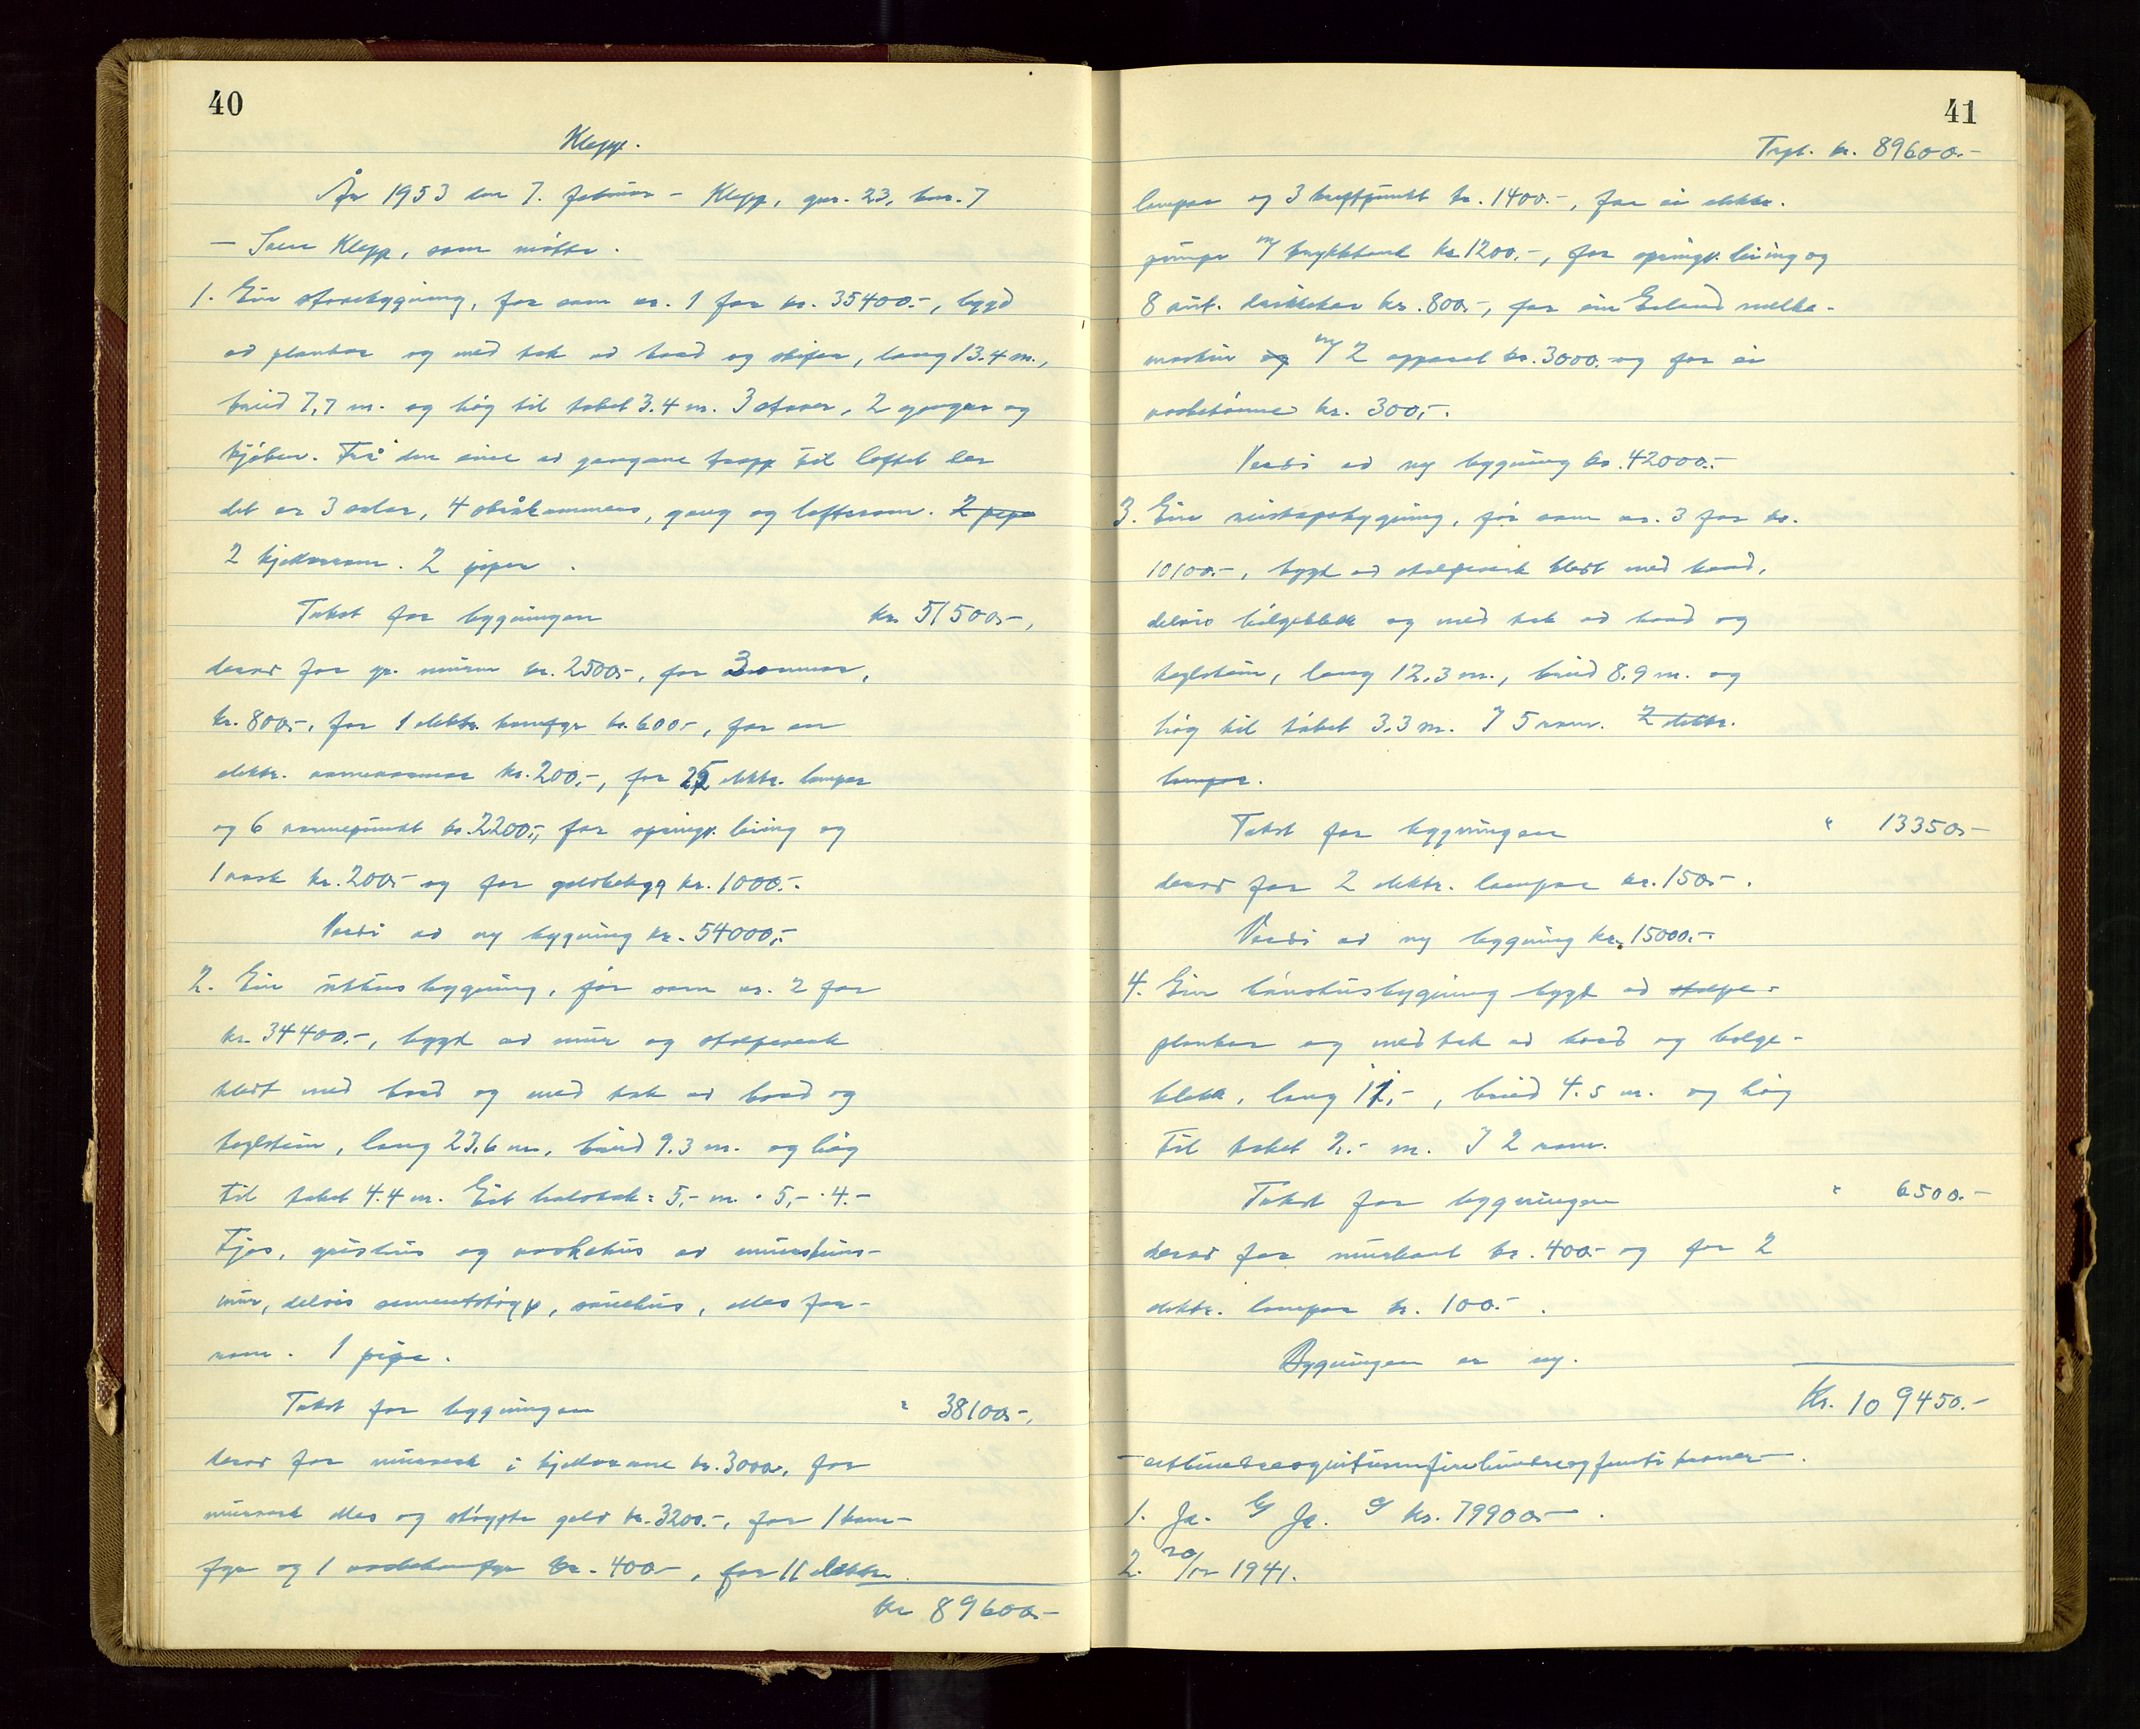 40
Klepp.
År 1953 den 7. februar – Klepp, gnr. 23, bnr. 7
– Klepp, som møtte.
1. Ein stovebygning, før som nr. 1 for kr. 35400.-, bygd
av plankar og med tak av bord og skifer, lang 13.4 m.,
breid 7,7 m. og høg til taket 3.4 m. 3 stover, 2 gangar og
kjøken. Frå den eine av gangane trapp til loftet der
det er 3 salar, 4 småkammers, gang og loftsrom. 2 pipe
2 kjellarrom. 2 piper.
Takst for bygningen kr. 51500.-,
derav for gr. muren kr. 2500.-, for 3 omnar,
kr. 800.-, for 1 elektr. komfyr kr. 600.-, for en
elektr. kr. 200.-, for elektr. lampar
og 6 varmepunkt kr. 2200.-, for springv. leiing og
1 vask kr. 200.- og for golvbelegg kr. 1000.-.
Verdi av ny bygning kr. 54000.-
2. Ein uthusbygning, før som nr. 2 for
kr. 34400.-, bygd av mur og stolpeverk
kledt med bord og med tak av bord og
teglstein, lang 23,6 m., breid 9.3 m. og høg
til taket 4.4 m. Eit halvtak: 5,- m. · 5,- · 4.-
Fjøs, grishus og vaskehus av murstein-
mur, delvis sementstøypt, sauehus, elles for-
rom. 1 pipe.
Takst for bygningen " 38100.-,
derav for murverk i kjellarane kr. 3000.-, for
murverk elles og støypte golv kr. 3200.-, for 1 kom-
fyr og 1 kr. 400.-, for 11 elektr.
kr 89600.-
41
Trpt. kr. 89600.-
lampar og 3 kraftpunkt kr. 1400.-, for ei elektr.
pumpe m/ trykktank kr 1200.-, for springv. leiing og
8 aut. drikkekar kr. 800.-, for ein melke-
maskin og m/ 2 apparat kr. 3000.- og for ei
vasketønne kr. 300,-.
Verdi av ny bygning kr. 42000.-
3. Ein reiskapsbygning, før som nr. 3 for kr.
10100.-, bygd av stolpeverk kledt med bord,
delvis bølgeblekk og med tak av bord og
teglstein, lang 12.3 m., breid 8.9 m. og
høg til taket 3.3 m. I 5 rom. 2 elektr.
lampar.
Takst for bygningen " 13350.-
derav for 2 elektr. lampar kr. 150.-.
Verdi av ny bygning kr. 15000.-
4. Ein hønsehusbygning bygd av stolpe-
plankar og med tak av bord og bølge-
blekk, lang 11,-, breid 4.5 m. og høg
til taket 2.- m. I 2 rom.
Takst for bygningen " 6500.-
derav for kr. 400.- og for 2
elektr. lampar kr. 100.-.
Bygningen er ny.
Kr. 109450.-
– eitthundreognitusenfirehundreogfemti kroner –.
1. Ja. b/ Ja. c/ kr. 79900.-.
2. 20/12 1941.